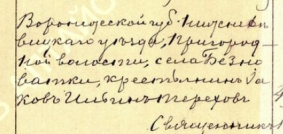 Воронежской губ. Нижнедѣ
вицкаго уѣзда, Пригород-
ной волости, села Безно
ватки, крестьянинъ Яа
ковъ Ильинъ Тереховъ
Священникъ